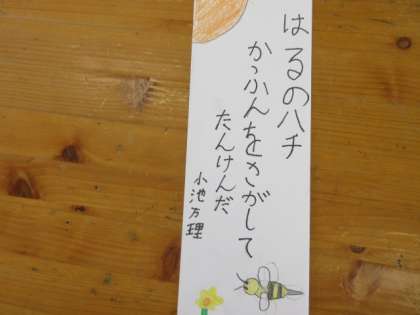 はるのハチ
かふんをさがして
たんけんだ
小池万理